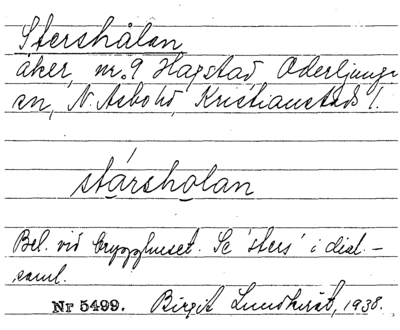 Stershålan
åker, nr. 9 Hagstad Oderljunga
sn, N. Åsbo hd, Kristianstads l.
stársholan
Bel. vid brygghuset. Se 'sters' i dial.-
saml.
Nr 5499. Birgit Lundkvist, 1938.